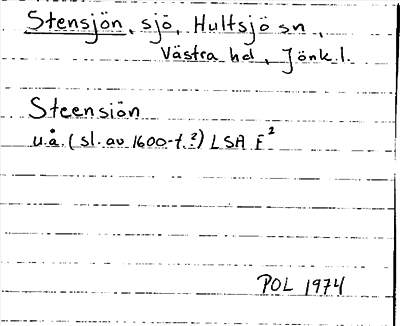 Stensjön, sjö, Hultsjö sn,
Västra hd, Jönk.l.
Steensiön
u.å. (sl. av 1600-t.?) LSA F²
POL 1974